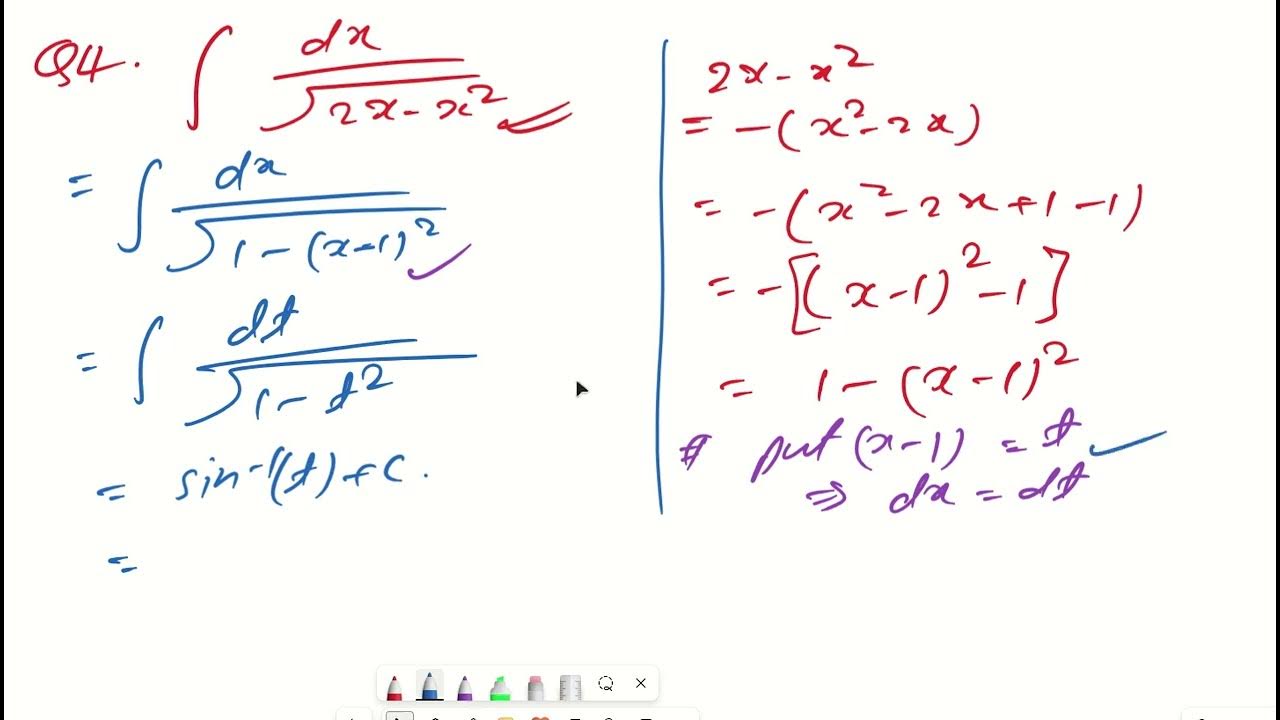 Q4. ∫ dx / √(2x - x²)
= ∫ dx / √(1 - (x-1)²)
= ∫ dt / √(1 - t²)
= sin⁻¹(t) + C.
=
2x - x²
= -(x² - 2x)
= -(x² - 2x + 1 - 1)
= -[(x - 1)² - 1]
= 1 - (x - 1)²
put (x-1) = t
⇒ dx = dt